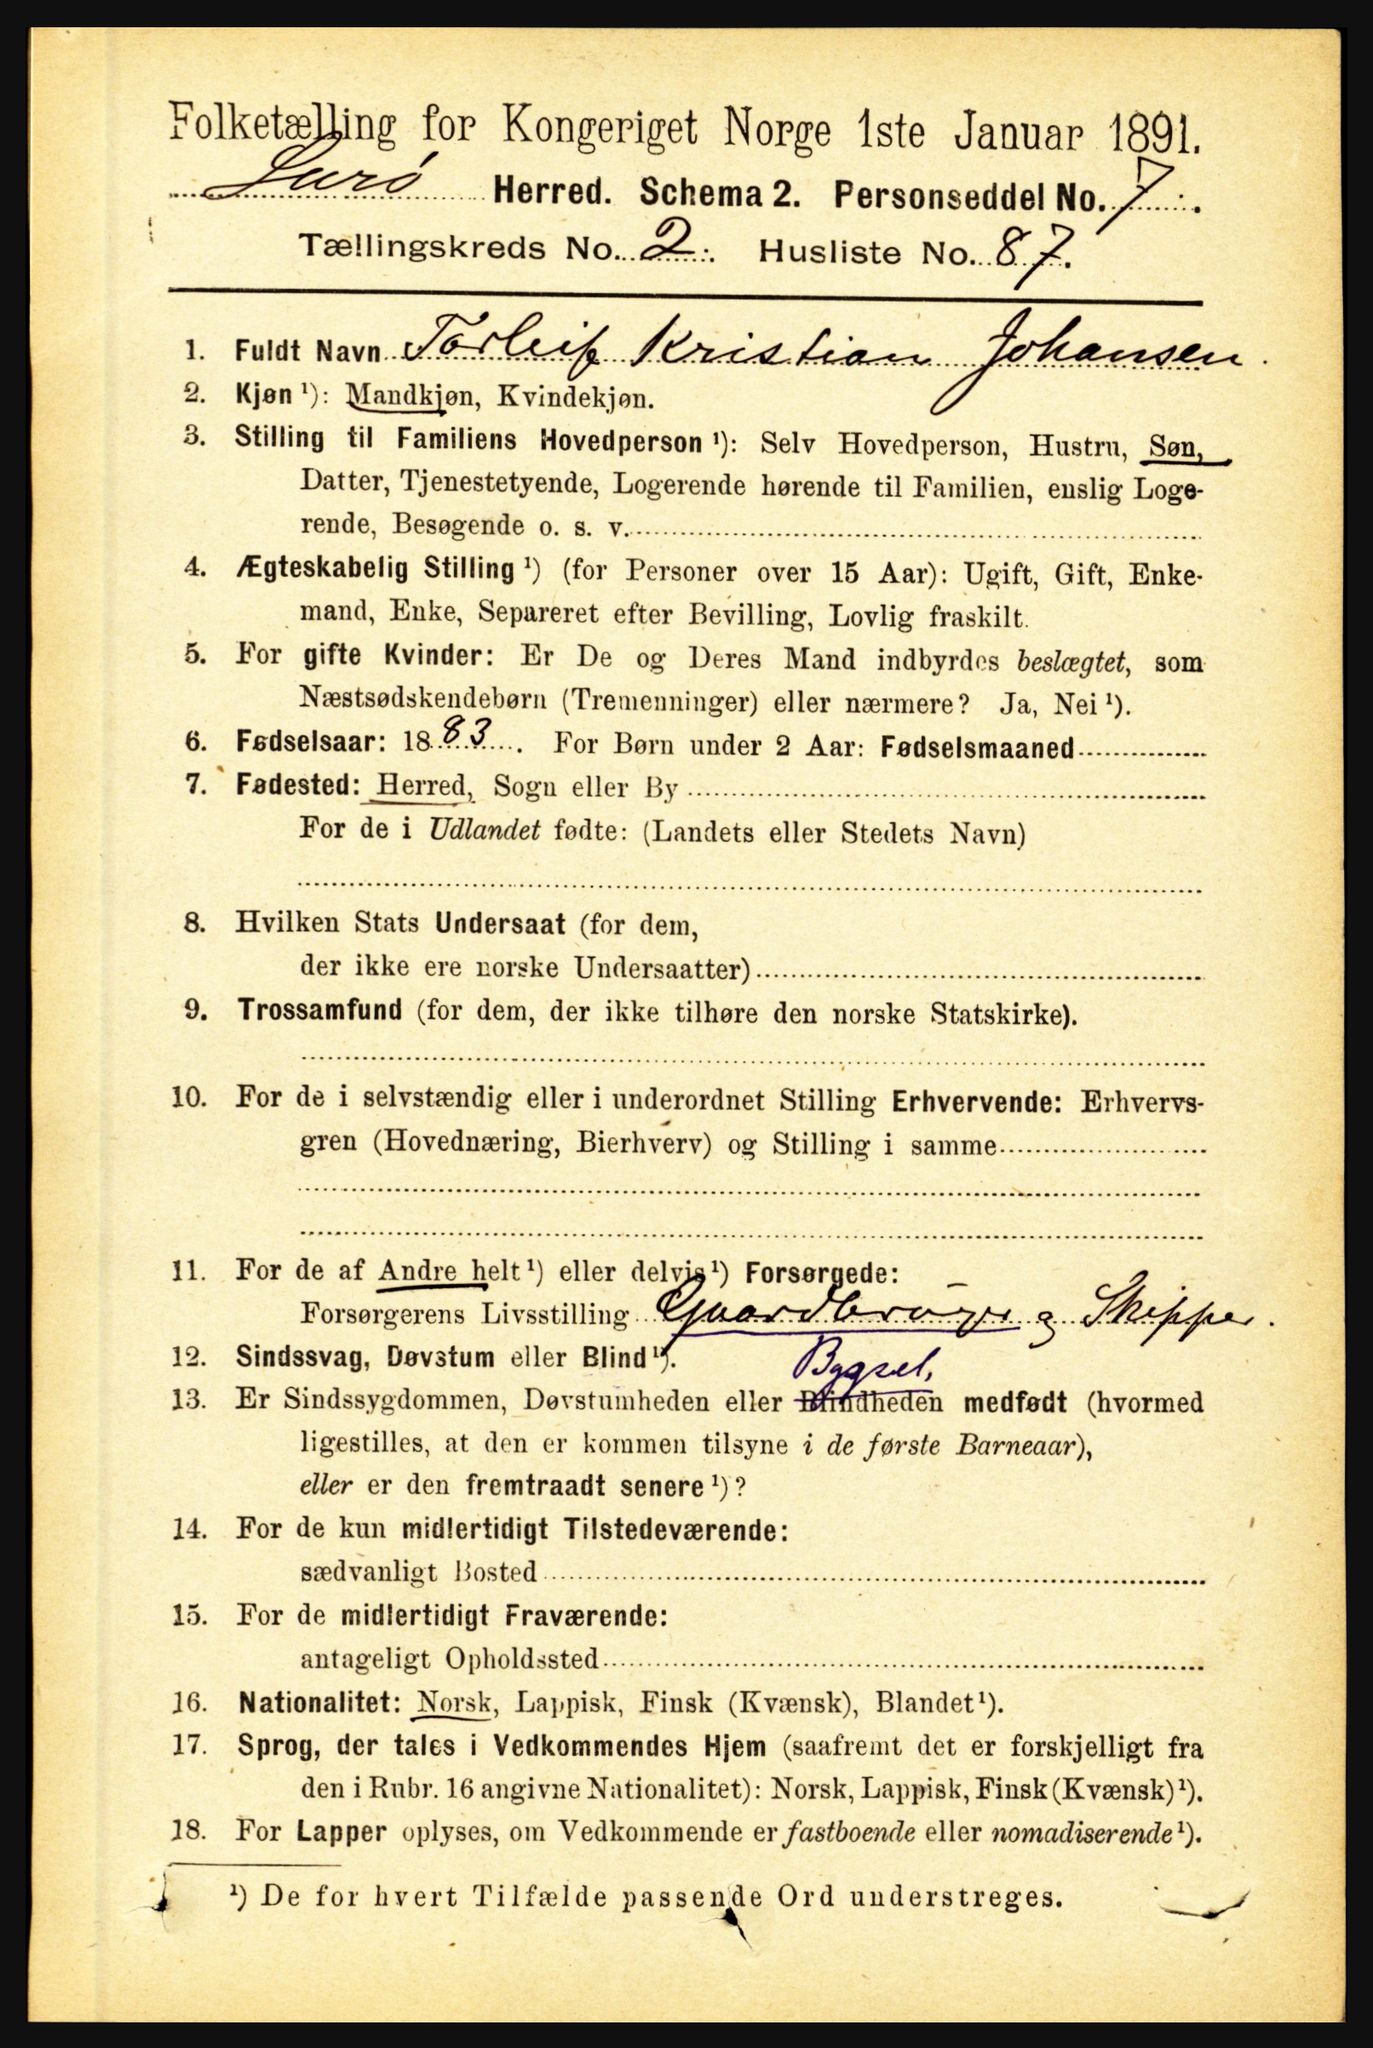 Folketælling for Kongeriget Norge 1ste Januar 1891.
Lurø Herred. Schema 2. Personseddel No. 7.
Tællingskreds No. 2. Husliste No. 87.
1. Fuldt Navn Torleif Kristian Johansen.
2. Kjøn ¹): Mandkjøn, Kvindekjøn.
3. Stilling til Familiens Hovedperson ¹): Selv Hovedperson, Hustru, Søn,
Datter, Tjenestetyende, Logerende hørende til Familien, enslig Loge-
rende, Besøgende o. s. v.
4. Ægteskabelig Stilling ¹) (for Personer over 15 Aar): Ugift, Gift, Enke-
mand, Enke, Separeret efter Bevilling, Lovlig fraskilt.
5. For gifte Kvinder: Er De og Deres Mand indbyrdes beslægtet, som
Næstsødskendebørn (Tremenninger) eller nærmere? Ja, Nei ¹).
6. Fødselsaar: 1883. For Børn under 2 Aar: Fødselsmaaned
7. Fødested: Herred, Sogn eller By
For de i Udlandet fødte: (Landets eller Stedets Navn)
8. Hvilken Stats Undersaat (for dem,
der ikke ere norske Undersaatter)
9. Trossamfund (for dem, der ikke tilhøre den norske Statskirke).
10. For de i selvstændig eller i underordnet Stilling Erhvervende: Erhvervs-
gren (Hovednæring, Bierhverv) og Stilling i samme
11. For de af Andre helt ¹) eller delvis ¹) Forsørgede:
Forsørgerens Livsstilling Gaardbruger og Skipper.
12. Sindssvag, Døvstum eller Blind ¹). Bygsel.
13. Er Sindssygdommen, Døvstumheden eller Blindheden medfødt (hvormed
ligestilles, at den er kommen tilsyne i de første Barneaar),
eller er den fremtraadt senere ¹)?
14. For de kun midlertidigt Tilstedeværende:
sædvanligt Bosted
15. For de midlertidigt Fraværende:
antageligt Opholdssted
16. Nationalitet: Norsk, Lappisk, Finsk (Kvænsk), Blandet ¹).
17. Sprog, der tales i Vedkommendes Hjem (saafremt det er forskjelligt fra
den i Rubr. 16 angivne Nationalitet): Norsk, Lappisk, Finsk (Kvænsk) ¹).
18. For Lapper oplyses, om Vedkommende er fastboende eller nomadiserende ¹).
¹) De for hvert Tilfælde passende Ord understreges.